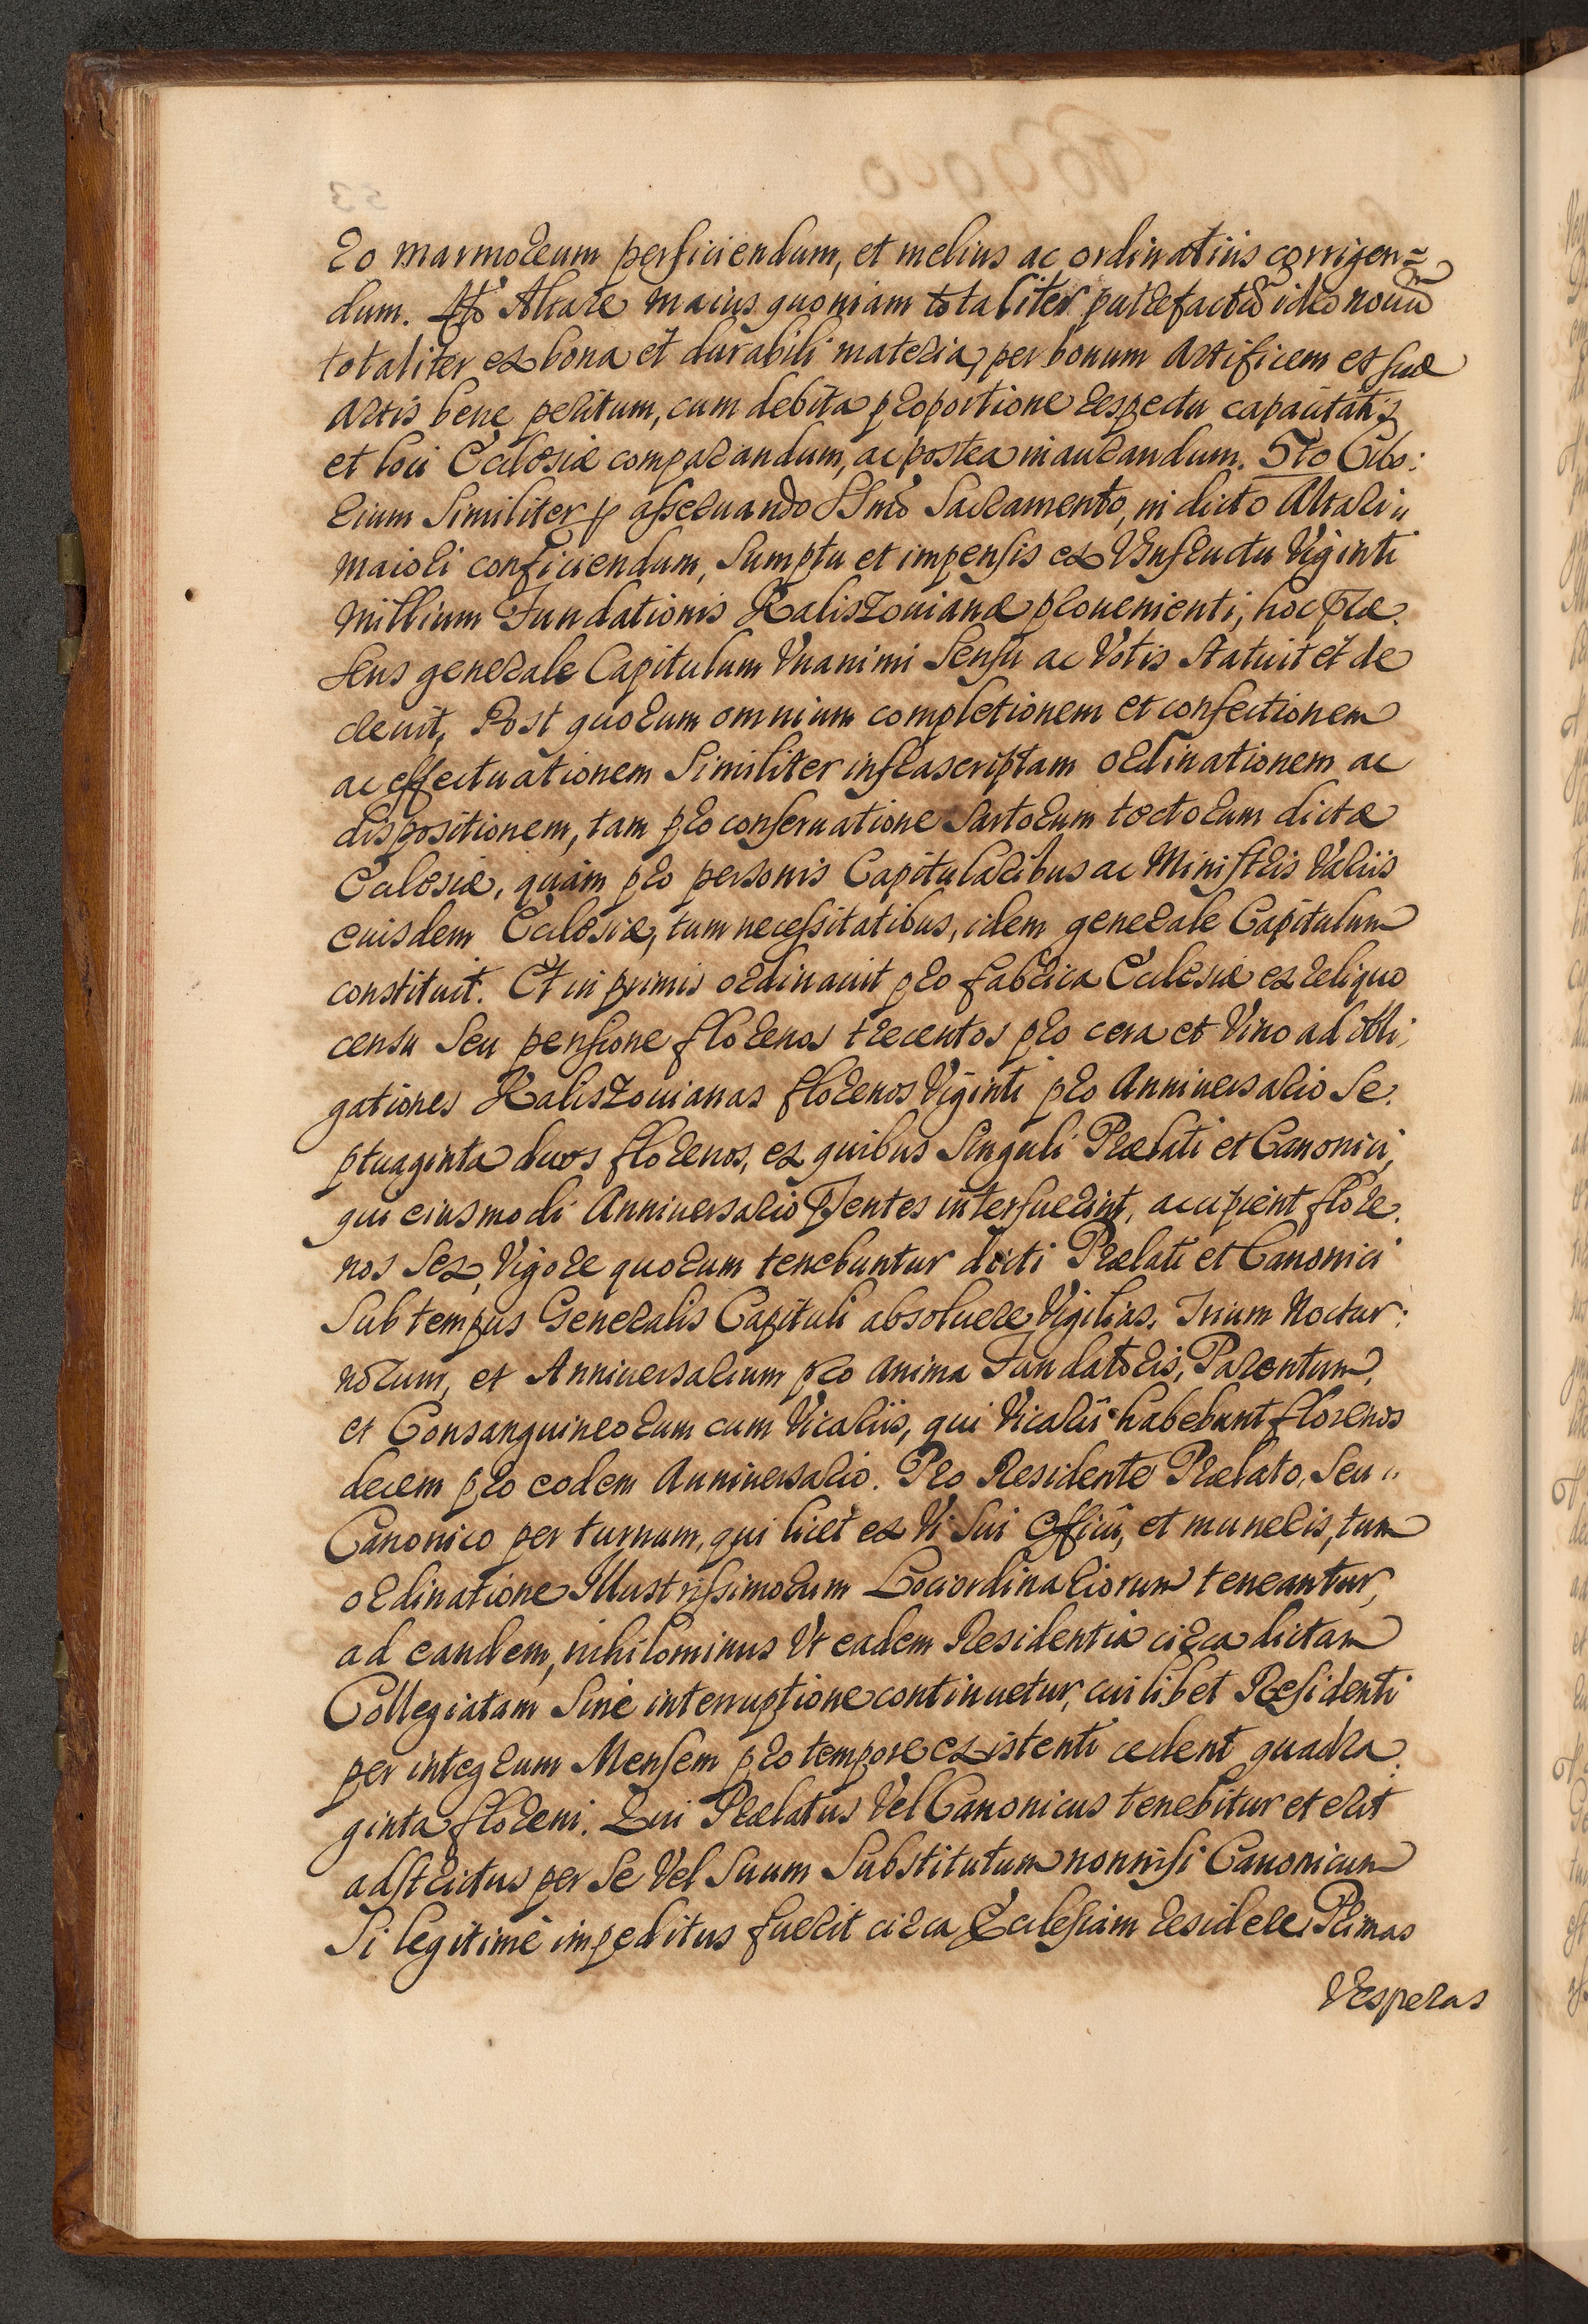 ro marmoreum perficiendum, et melius ac ordinatius corrigen=
dum. 4to Altare maius quoniam totaliter putrefactũ ideo nouũ
totaliter ex bona et durabili materia, per bonum Artificem et suæ
Artis bene peritum, cum debita proportione respectu capacitatis
et loci Ecclesiæ comparandum, ac postea inaurandum. 5to Cibo:
rium Similiter p asseruando SSmo Sacramento, in dicto Altari
maiori conficiendum, Sumptu et impensis ex Vsufructu Viginti
millium Fundationis Kaliszouianæ prouenienti, hoc præ:
sens generale Capitulum Vnanimi Sensu ac Votis Statuit et de
creuit, Post quorum omnium completionem et confectionem
ac effectuationem Similiter infrascriptam ordinationem ac
dispositionem, tam pro conseruatione Sartorum tectorum dictæ
Ecclesiæ, quàm pro personis Capitularibus ac Ministris Varijs
euisdem Ecclesiæ, tum necessitatibus, idem generale Capitulum
constituit. Et in primis ordinauit pro fabrica Ecclesiæ ex reliquo
censu Seu pensione florenos trecentos pro cera et Vino ad obli:
gationes Kaliszouianas florenos Viginti pro Anniuersario Se:
ptuaginta duos florenos, ex quibus Singuli Prælati et Canonici,
qui eiusmodi Anniuersario pñtes interfuerint, accipient flore:
nos Sex, Vigore quorum tenebuntur dicti Prælati et Canonici
Sub tempus Generalis Capituli absoluere Vigilias, Trium Noctur:
norum, et Anniuersarium pro anima Fundatoris, Parentum,
et Consanguineorum cum Vicarijs, qui Vicarij habebunt florenos
decem pro eodem Anniuersario. Pro Residente Prælato, Seu
Canonico per turnum, qui licet ex Vi Sui Officij, et muneris, tum
ordinatione Illustrissimorum Lociordinariorum teneantur,
ad eandem, nihilominus Vt eadem Residentia circa dictam
Collegiatam Sine interruptione continuetur, cuilibet Residenti
per integrum Mensem pro tempore existenti cedent quadra:
ginta floreni. Qui Prælatus Vel Canonicus tenebitur et erit
adstrictus per Se Vel Suum Substitutum nonnisi Canonicum
Si legitimè impeditus fuerit circa Ecclesiam residere, Primas
Vesperas